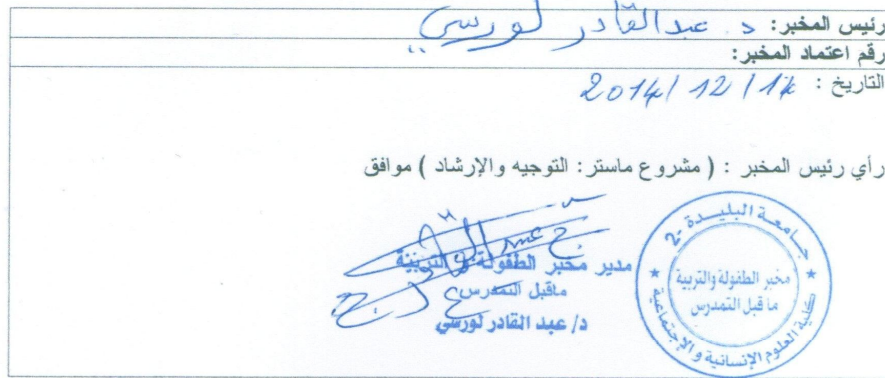 رئيس المخبر: د. عبد القادر لورسي
رقم اعتماد المخبر:
التاريخ : 2014/12/14
رأي رئيس المخبر : ( مشروع ماستر: التوجيه والإرشاد ) موافق
مدير مخبر الطفولة و التربية
ماقبل التمدرس
د/ عبد القادر لورسي
جامعة البليدة -2
مخبر الطفولة والتربية
ما قبل التمدرس
كلية العلوم الإنسانية و الإجتماعية